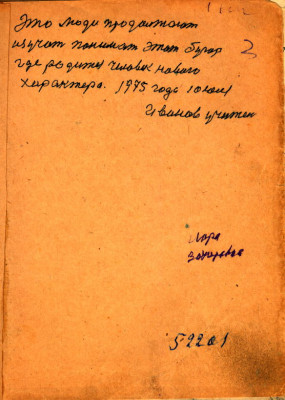 Это люди продолжают
изучат понимат этот бугор
где родился человек нового
характера. 1975 года 10 юля
Иванов учител
52201